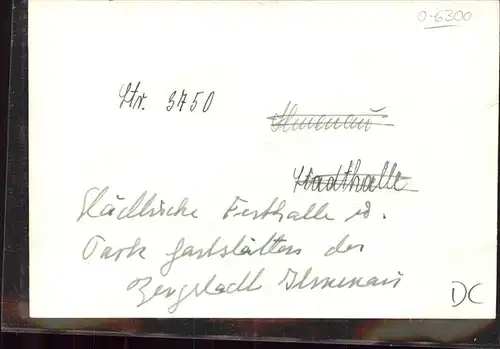 0-6300
Str. 3750
Ilmenau
Stadthalle
Städtische Festhalle u.
Park Gaststätten der
Bergstadt Ilmenau
DC